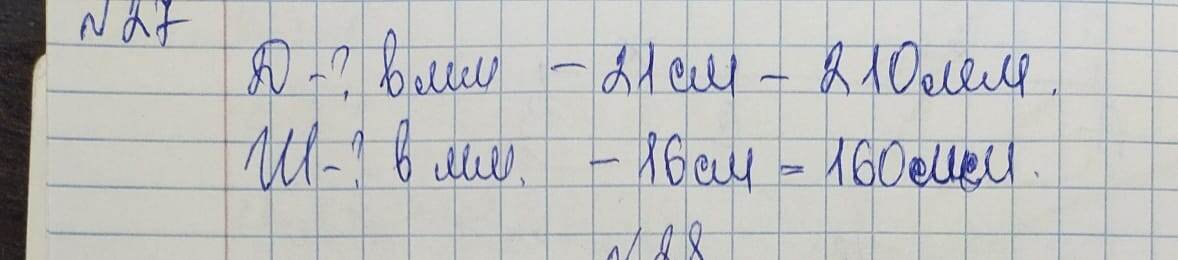 N 27
Д - ? в мм - 21 см - 210 мм.
Ш - ? в мм. - 16 см = 160 мм.
N 28